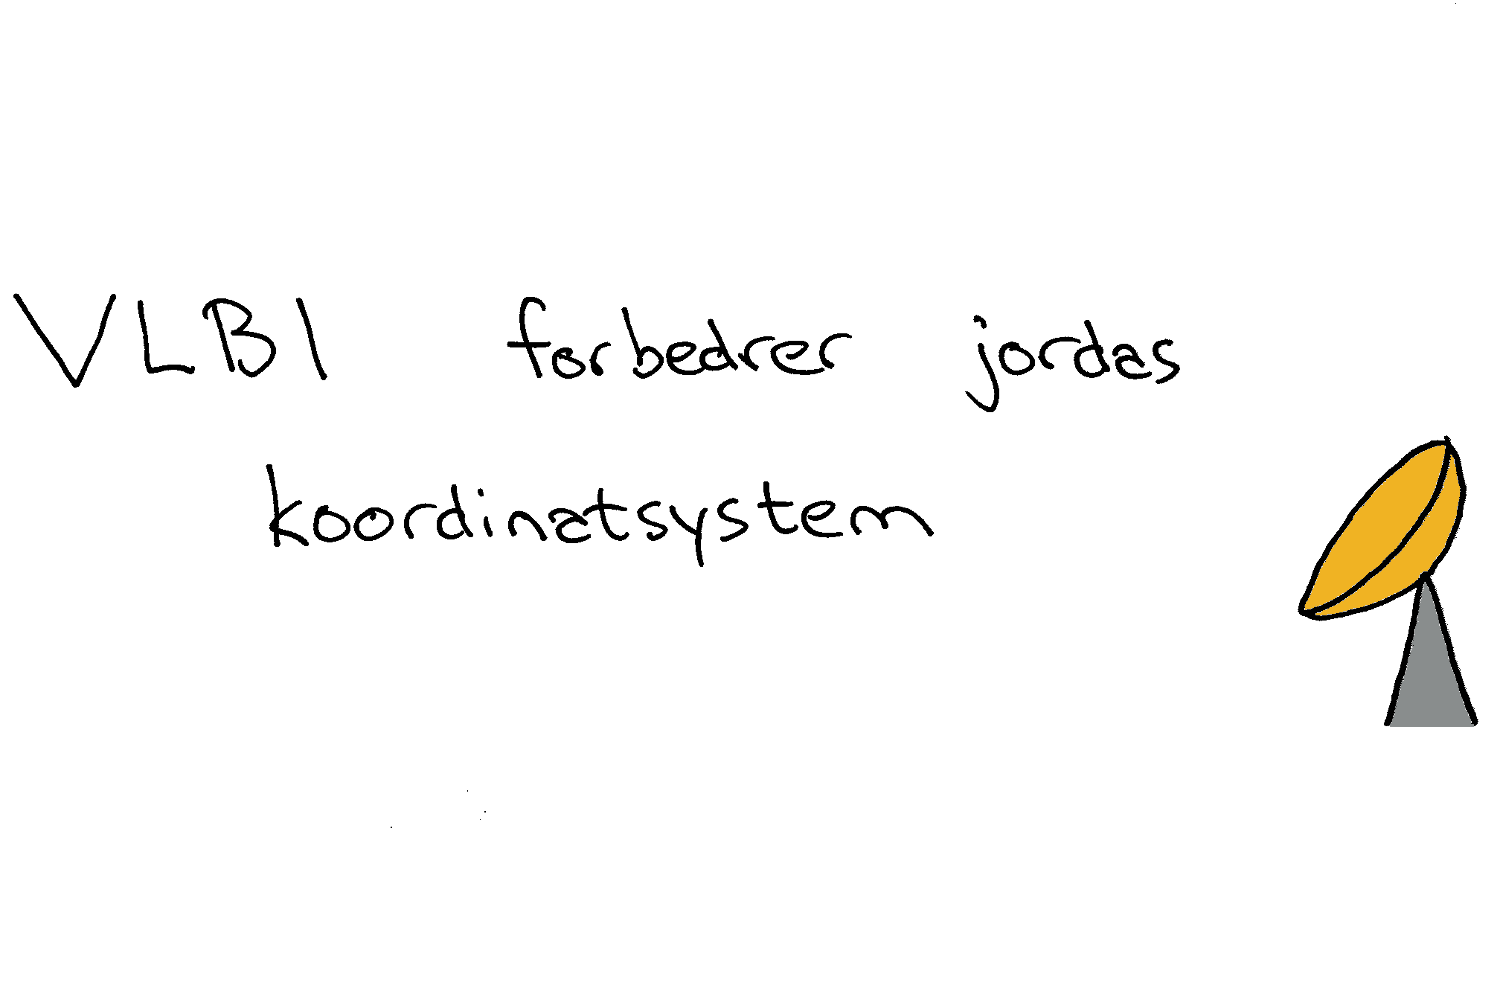 VLBI forbedrer jordas
koordinatsystem